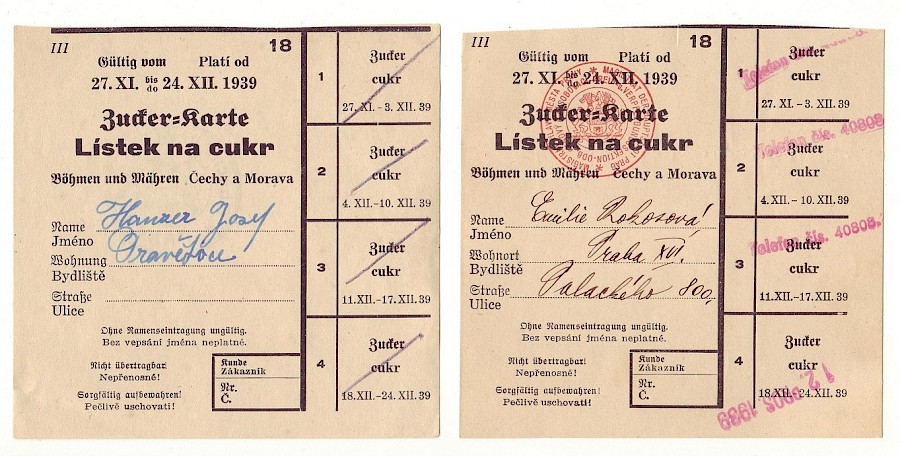 III 18
Gültig vom Platí od
27. XI. bis do 24. XII. 1939
Zucker=Karte
Lístek na cukr
Böhmen und Mähren Čechy a Morava
Name Hanzer Josef
Jméno
Wohnung
Bydliště
Straße
Ulice
Ohne Namenseintragung ungültig.
Bez vepsání jména neplatné.
Nicht übertragbar!
Nepřenosné!
Sorgfältig aufbewahren!
Pečlivě uschovati!
Kunde
Zákazník
Nr.
Č.
1 Zucker
cukr
27. XI. - 3. XII. 39
2 Zucker
cukr
4. XII. - 10. XII. 39
3 Zucker
cukr
11. XII. - 17. XII. 39
4 Zucker
cukr
18. XII. - 24. XII. 39
III 18
Gültig vom Platí od
27. XI. bis do 24. XII. 1939
Zucker=Karte
Lístek na cukr
Böhmen und Mähren Čechy a Morava
Name Emilie Rohosová
Jméno
Wohnort Praha XVI.
Bydliště
Straße Palackého 800,
Ulice
Ohne Namenseintragung ungültig.
Bez vepsání jména neplatné.
Nicht übertragbar!
Nepřenosné!
Sorgfältig aufbewahren!
Pečlivě uschovati!
Kunde
Zákazník
Nr.
Č.
1 Zucker
cukr
27. XI. - 3. XII. 39
Telefon čís. 40808.
2 Zucker
cukr
4. XII. - 10. XII. 39
Telefon čís. 40808.
3 Zucker
cukr
11. XII. - 17. XII. 39
4 Zucker
cukr
18. XII. - 24. XII. 39
1939